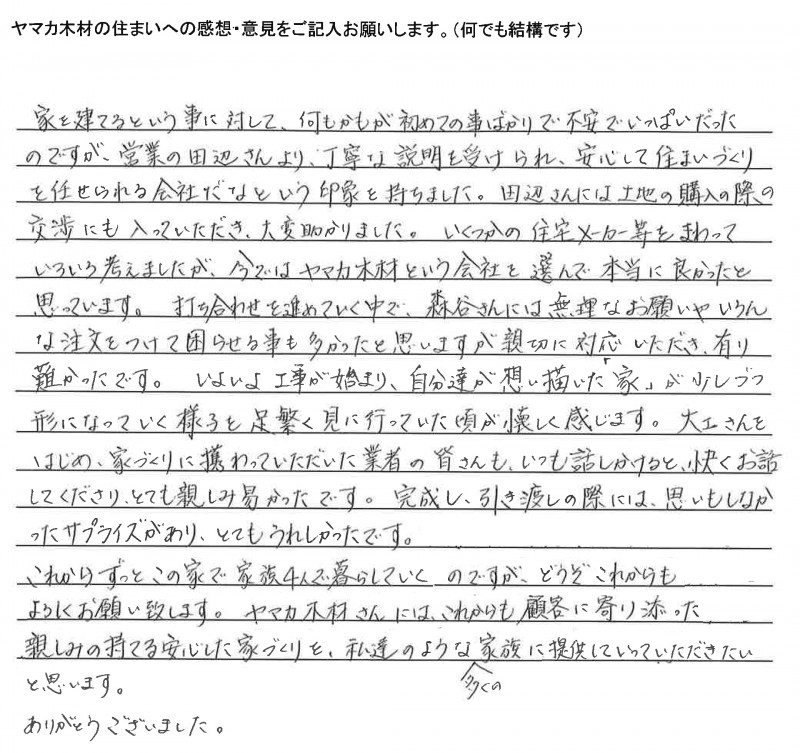 ヤマカ木材の住まいへの感想・意見をご記入お願いします。（何でも結構です）
家を建てるという事に対して、何もかもが初めての事ばかりで不安でいっぱいだった
のですが、営業の田辺さんより、丁寧な説明を受けられ、安心して住まいづくり
を任せられる会社だなという印象を持ちました。田辺さんには土地の購入の際の
交渉にも入っていただき、大変助かりました。いくつかの住宅メーカー等をまわって
いろいろ考えましたが、今ではヤマカ木材という会社を選んで本当に良かったと
思っています。打ち合わせを進めていく中で、森谷さんには無理なお願いやいろん
な注文をつけて困らせる事も多かったと思いますが親切に対応いただき、有り
難かったです。いよいよ工事が始まり、自分達が想い描いた「家」が少しづつ
形になっていく様子を足繁く見に行っていた頃が懐しく感じます。大工さんを
はじめ、家づくりに携わっていただいた業者の皆さんも、いつも話しかけると、快くお話
してくださり、とても親しみ易かったです。完成し、引き渡しの際には、思いもしなか
ったサプライズがあり、とてもうれしかったです。
これからずっとこの家で家族4人で暮らしていくのですが、どうぞこれからも
よろしくお願い致します。ヤマカ木材さんには、これからも顧客に寄り添った
親しみの持てる安心した家づくりを、私達のような家族に提供していっていただきたい
と思います。
多くの
ありがとうございました。